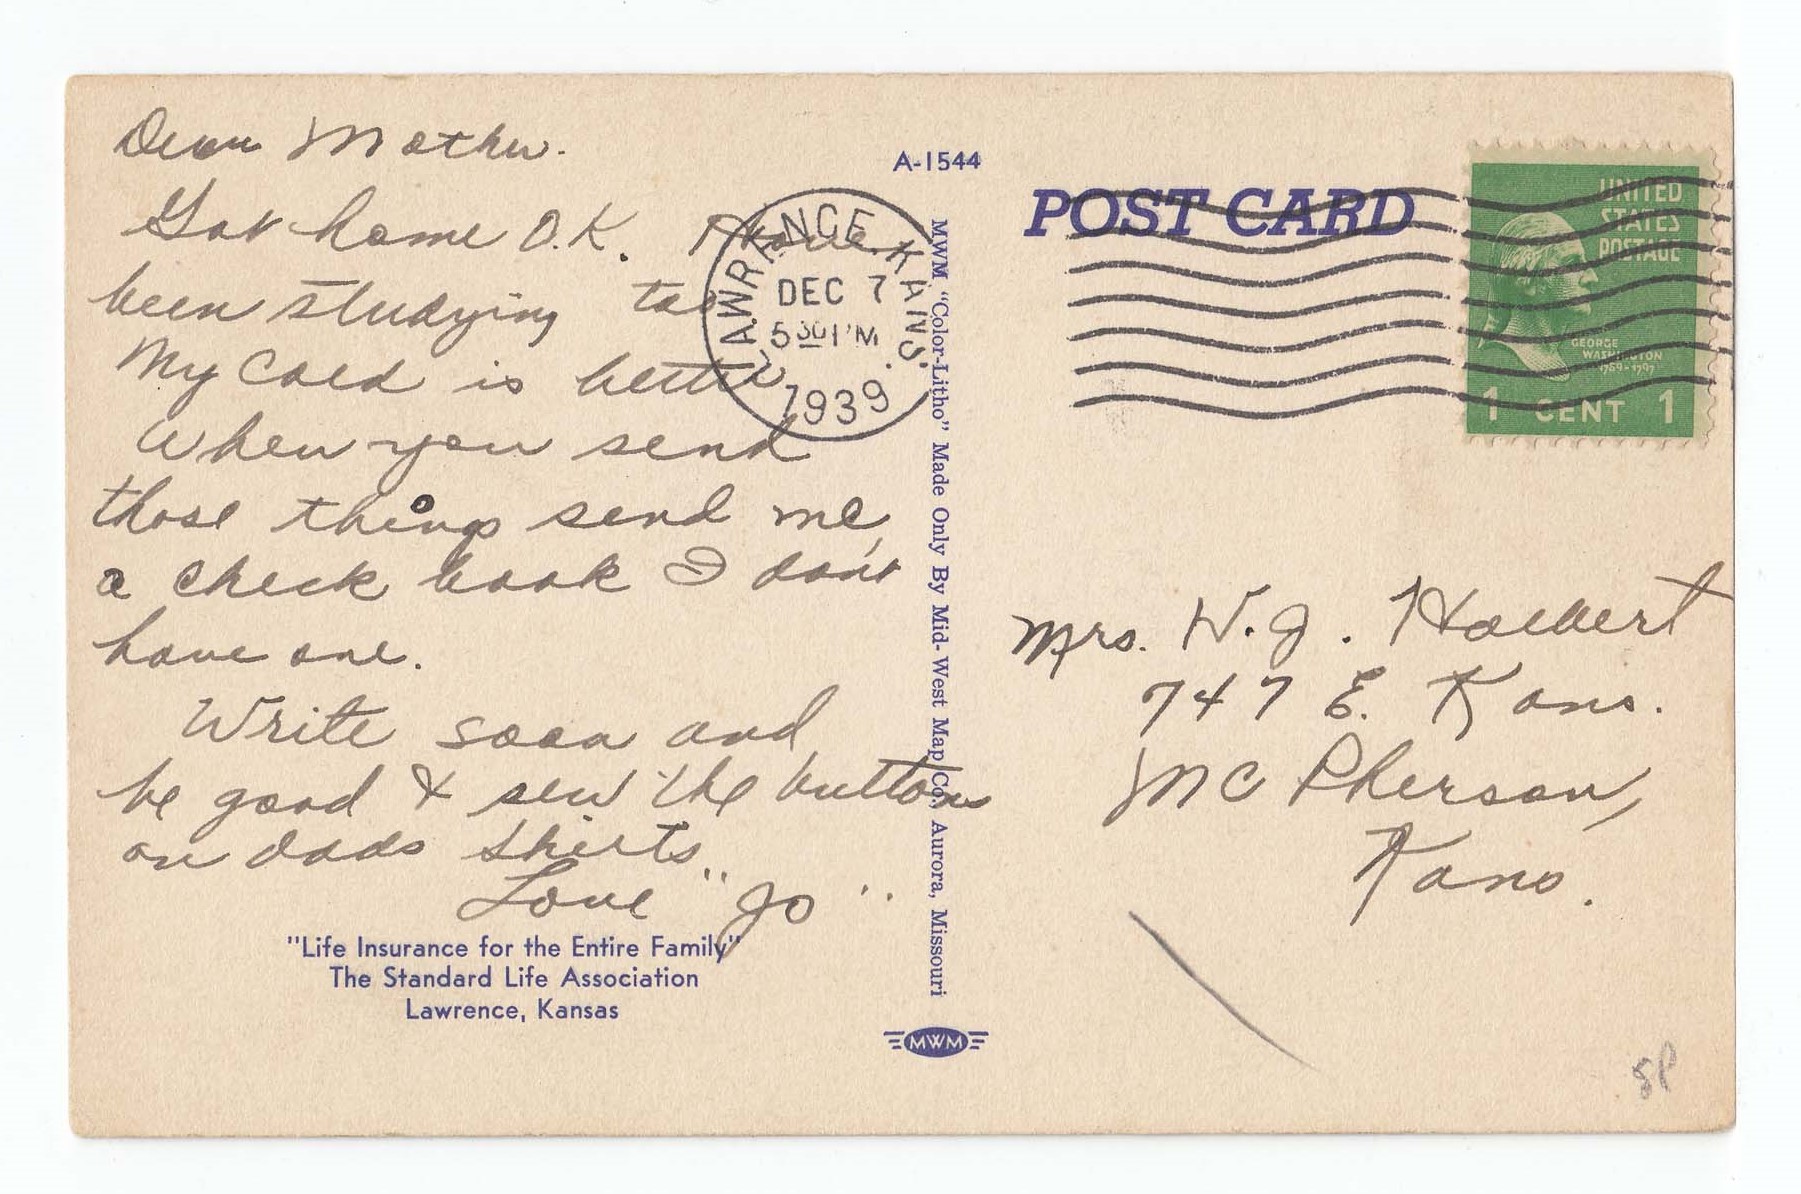 Dear Mother.
Got home O.K. Have
been studying too
My cold is better
When you send
those things send me
a check book I don't
have one.
Write soon and
be good & sew the buttons
on dads shirts.
Love "Jo"
"Life Insurance for the Entire Family"
The Standard Life Association
Lawrence, Kansas
A-1544
MWM "Color-Litho" Made Only By Mid-West Map Co., Aurora, Missouri
MWM
LAWRENCE, KANS.
DEC 7
5 30 PM
1939
POST CARD
UNITED
STATES
POSTAGE
GEORGE
WASHINGTON
1789-1797
1 CENT 1
Mrs. W. J.
747 E. Kans.
Mc Pherson,
Kans.